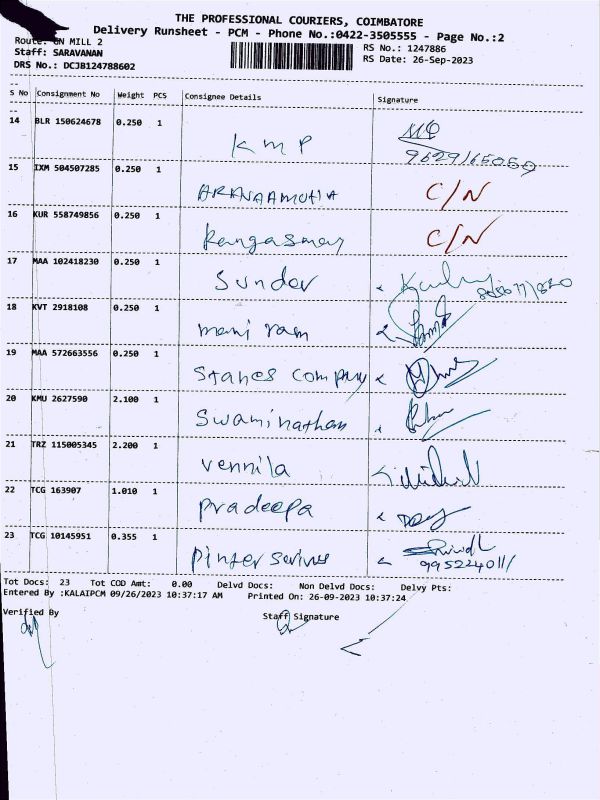 THE PROFESSIONAL COURIERS, COIMBATORE
Delivery Runsheet - PCM - Phone No.:0422-3505555 - Page No.:2
Route: GN MILL 2
RS No.: 1247886
Staff: SARAVANAN
RS Date: 26-Sep-2023
DRS No.: DCJB124788602
S No Consignment No Weight PCS Consignee Details Signature
14 BLR 150624678 0.250 1 KMP
15 IXM 504507285 0.250 1 C/N
16 KUR 558749856 0.250 1 Rangasmay C/N
17 MAA 102418230 0.250 1 Sunder
18 KVT 2918108 0.250 1 mani ram
19 MAA 572663556 0.250 1 Stanes company
20 KMU 2627590 2.100 1 Swaminathan
21 TRZ 115005345 2.200 1 vennila
22 TCG 163907 1.010 1 pradeepa
23 TCG 10145951 0.355 1
Tot Docs: 23 Tot COD Amt: 0.00 Delvd Docs: Non Delvd Docs: Delvy Pts:
Entered By :KALAIPCM 09/26/2023 10:37:17 AM Printed On: 26-09-2023 10:37:24
Verified By
Staff Signature